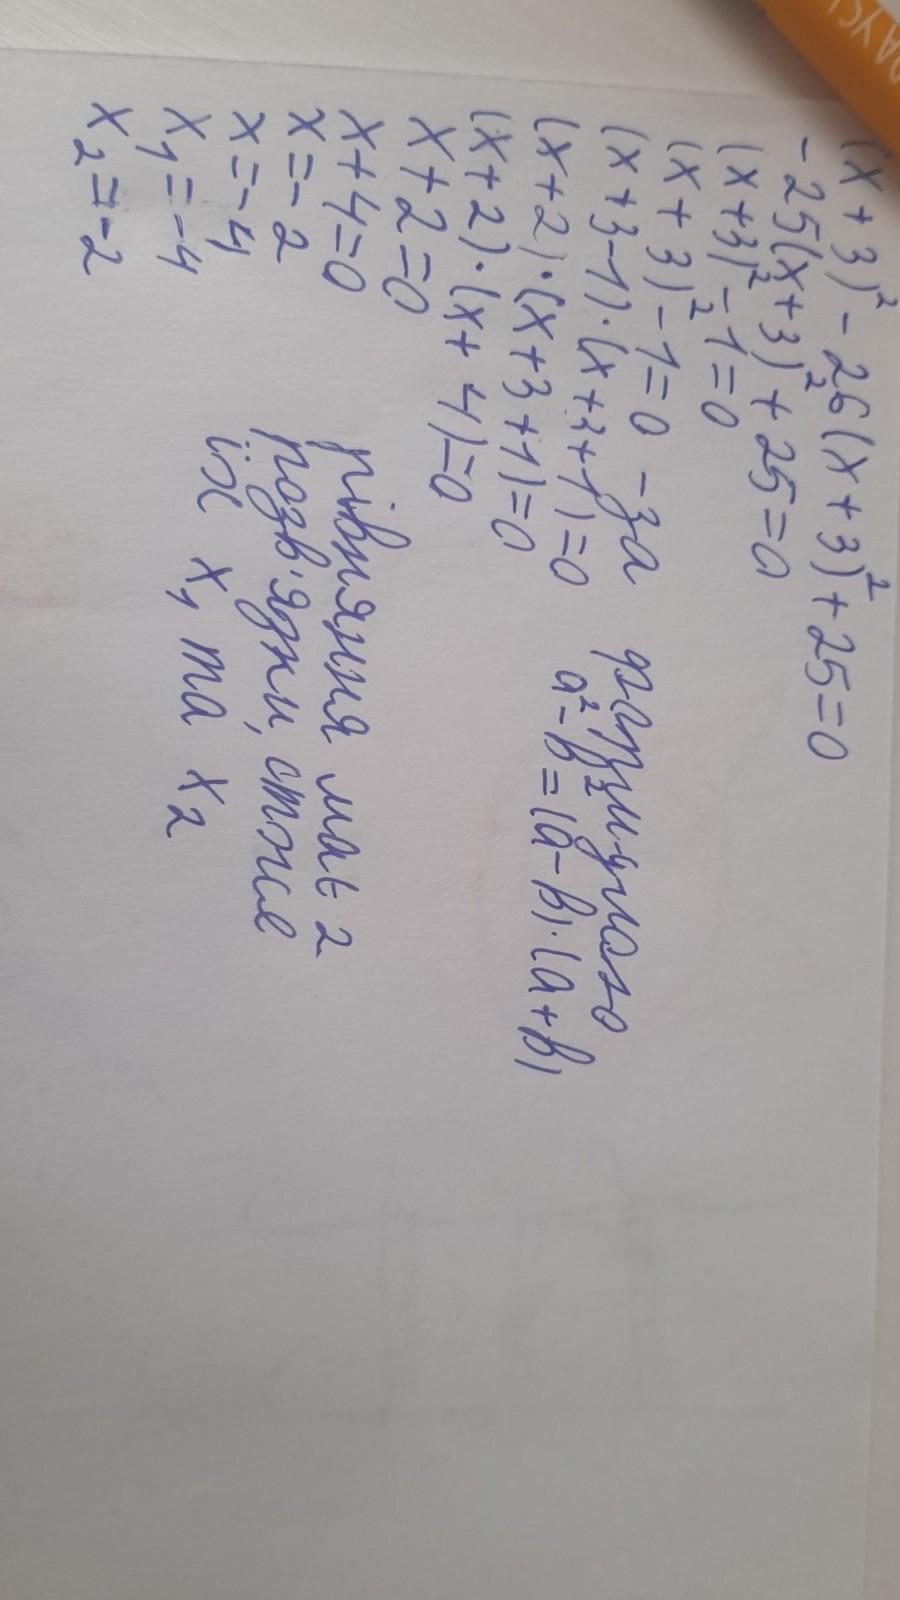 (x+3)² - 26(x+3)² + 25 = 0
-25(x+3)² + 25 = 0
(x+3)² - 1 = 0
(x+3)² - 1 = 0 - за формулою
(x+3-1)·(x+3+1) = 0 a² - b² = (a-b)·(a+b)
(x+2)·(x+3+1) = 0
(x+2)·(x+4) = 0
x+2 = 0
x+4 = 0
x = -2
x = -4
x₁ = -4
x₂ = -2
рівняння має 2
розв'язки, отже
їх x₁ та x₂